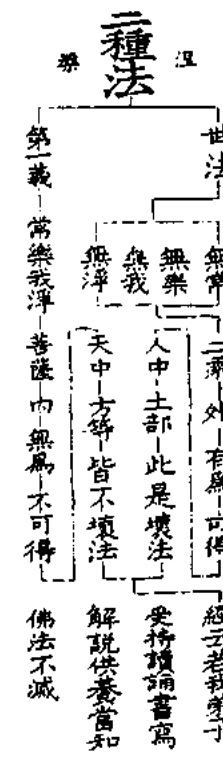 二種法
涅
槃
世法
無常
無樂
無我
無淨
二乘 外 有爲 可得
人中 十二部 此是壞法
天中 方等 皆不壞法
第一義 常樂我淨 菩薩 内 無爲 不可得
經云若我弟子
受持讀誦書寫
解説供養當知
佛法不滅